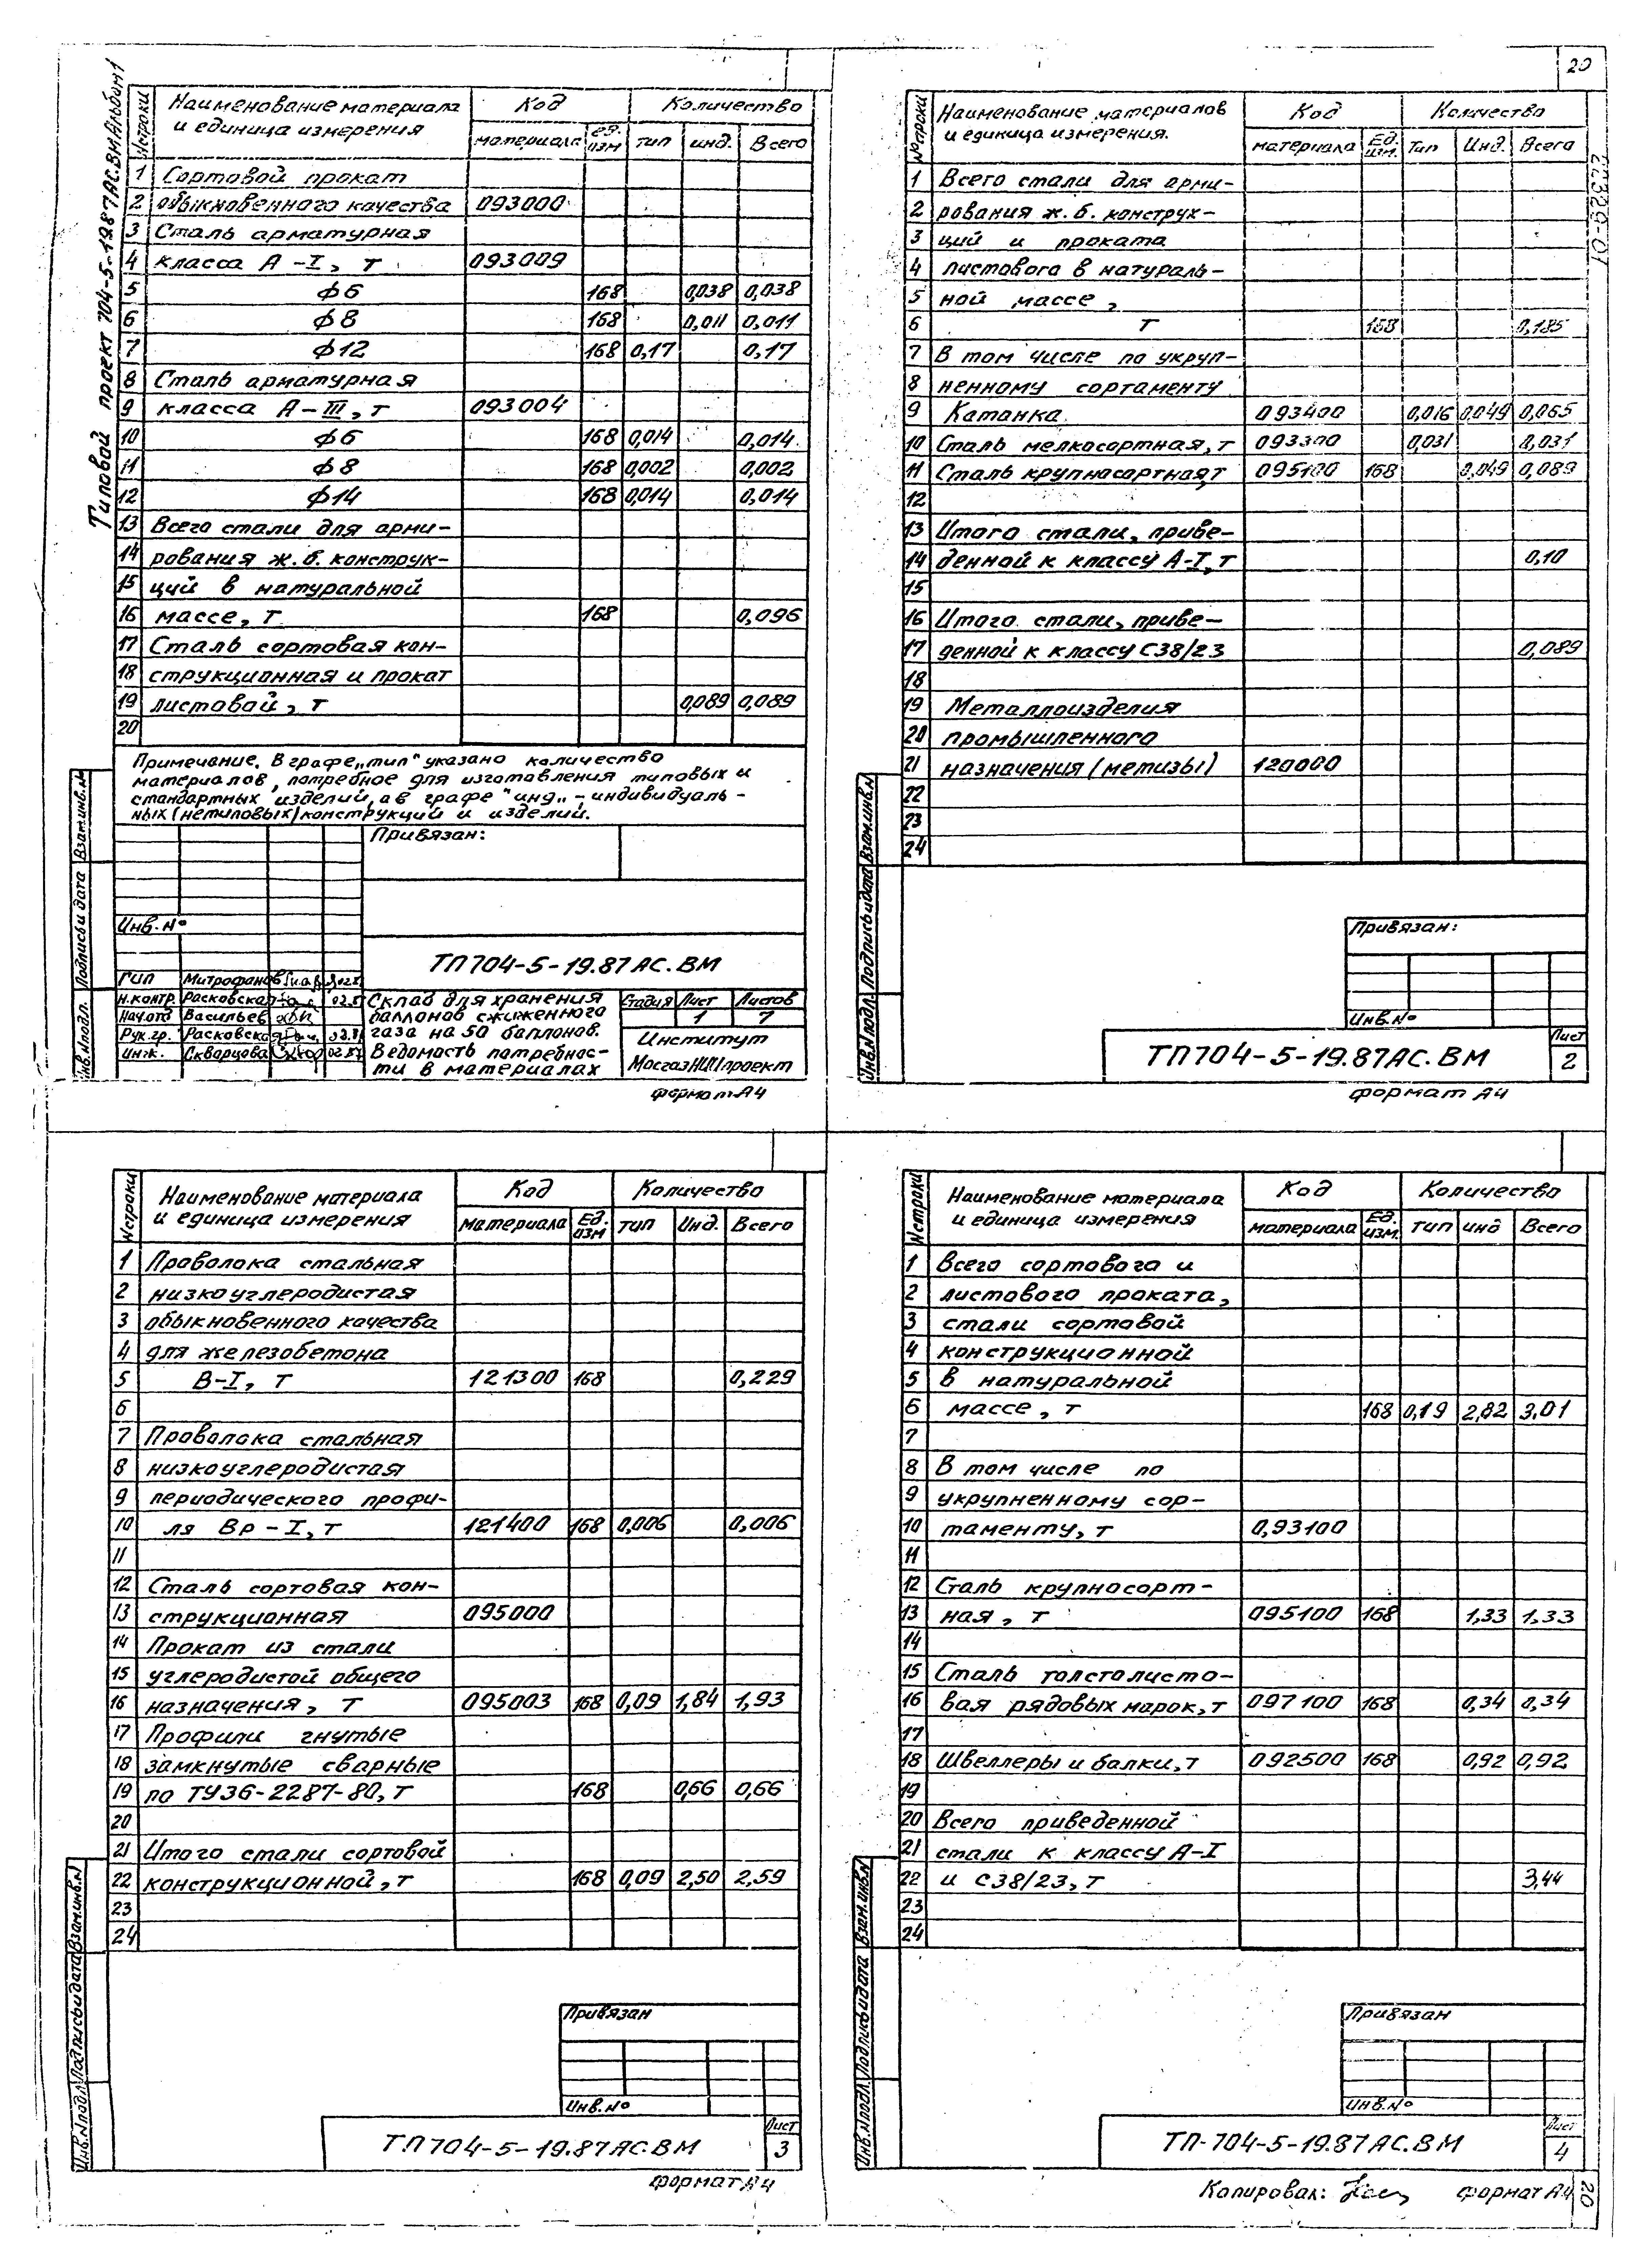 Типовой проект 704-5-19.87АС.ВМ.Альбом 1
№строки Наименование материала и единица измерения Код Количество
материала ед. изм тип инд. Всего
1 Сортовой прокат
2 обыкновенного качества 093000
3 Сталь арматурная
4 класса А-I, т 093009
5 ф6 168 0,038 0,038
6 ф8 168 0,011 0,011
7 ф12 168 0,17 0,17
8 Сталь арматурная
9 класса А-III, т 093004
10 ф6 168 0,014 0,014
11 ф8 168 0,002 0,002
12 ф14 168 0,014 0,014
13 Всего стали для арми-
14 рования ж.б. конструк-
15 ций в натуральной
16 массе, т 168 0,096
17 Сталь сортовая кон-
18 струкционная и прокат
19 листовой, т 0,089 0,089
20
Примечание. В графе „тип" указано количество
материалов, потребное для изготовления типовых и
стандартных изделий, а в графе "инд„ - индивидуаль-
ных (нетиповых) конструкций и изделий.
Привязан:
Инв. №
ТП704-5-19.87АС.ВМ
ГИП Митрофанов
Н.контр. Расковская
Нач.отд Васильев
Рук.гр. Расковская
Инж. Скварцова
Склад для хранения
баллонов сжиженного
газа на 50 баллонов.
Ведомость потребнос-
ти в материалах
Стадия Лист Листов
1 7
Институт
МосгазНИИпроект
Инв.№подл. Подпись и дата Взам.инв.№
формат А4
20
22329-01
№строки Наименование материалов и единица измерения. Код Количество
материала Ед. изм. Тип Инд. Всего
1 Всего стали для арми-
2 рования ж.б. конструк-
3 ций и проката
4 листового в натураль-
5 ной массе,
6 т 168 0,185
7 В том числе по укруп-
8 ненному сортаменту
9 Катанка 093400 0,016 0,049 0,065
10 Сталь мелкосортная, т 093300 0,031 0,031
11 Сталь крупносортная, т 095100 168 0,049 0,089
12
13 Итого стали, приве-
14 денной к классу А-I, т 0,10
15
16 Итого стали, приве-
17 денной к классу С38/23 0,089
18
19 Металлоизделия
20 промышленного
21 назначения (метизы) 120000
22
23
24
Привязан:
Инв.№
Инв.№подл. Подпись и дата Взам.инв.№
ТП704-5-19.87АС.ВМ
Лист
2
формат А4
№строки Наименование материала и единица измерения Код Количество
материала Ед. изм тип Инд. Всего
1 Проволока стальная
2 низкоуглеродистая
3 обыкновенного качества
4 для железобетона
5 В-I, т 121300 168 0,229
6
7 Проволока стальная
8 низкоуглеродистая
9 периодического профи-
10 ля Вр-I, т 121400 168 0,006 0,006
11
12 Сталь сортовая кон-
13 струкционная 095000
14 Прокат из стали
15 углеродистой общего
16 назначения, т 095003 168 0,09 1,84 1,93
17 Профили гнутые
18 замкнутые сварные
19 по ТУ36-2287-80, т 168 0,66 0,66
20
21 Итого стали сортовой
22 конструкционной, т 168 0,09 2,50 2,59
23
24
Привязан
Инв.№
Инв.№подл. Подпись и дата Взам.инв.№
ТП704-5-19.87АС.ВМ
Лист
3
формат А4
№строки Наименование материала и единица измерения Код Количество
материала Ед. изм. тип инд Всего
1 Всего сортового и
2 листового проката,
3 стали сортовой
4 конструкционной
5 в натуральной
6 массе, т 168 0,19 2,82 3,01
7
8 В том числе по
9 укрупненному сор-
10 таменту, т 0,93100
11
12 Сталь крупносорт-
13 ная, т 095100 168 1,33 1,33
14
15 Сталь толстолисто-
16 вая рядовых марок, т 097100 168 0,34 0,34
17
18 Швеллеры и балки, т 092500 168 0,92 0,92
19
20 Всего приведенной
21 стали к классу А-I
22 и С38/23, т 3,44
23
24
Привязан
Инв.№
Инв.№подл. Подпись и дата Взам.инв.№
ТП-704-5-19.87АС.ВМ
Лист
4
Копировал: формат А4
20